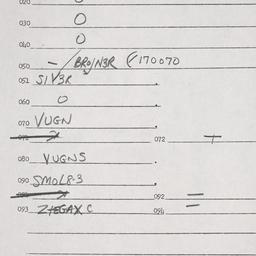 020 O
030 O
040 O
050 - / BRO/N3R F170070
051 S1V3R
060 O
070 VUGN
072
080 VUGNS
090 SMOL8-3
092
093 C 094